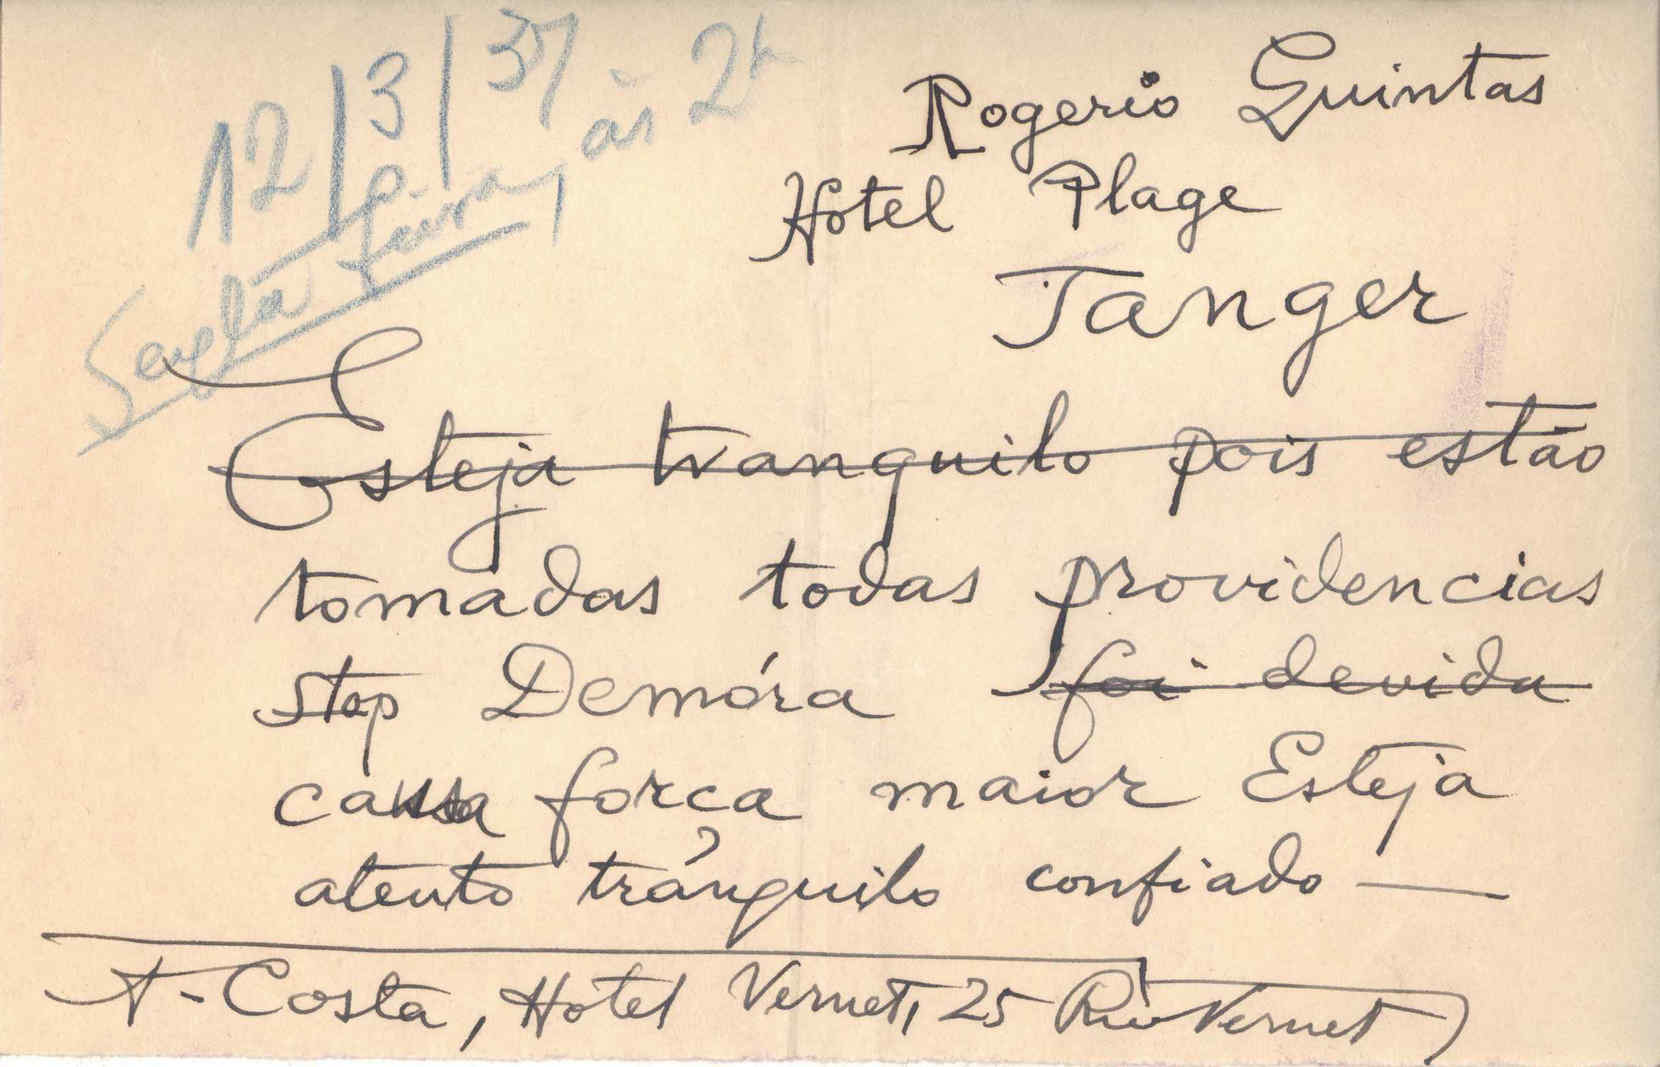 12/3/37 às 2h
Sexta feira,
Rogerio Quintas
Hotel Plage
Tanger
Esteja tranquilo pois estão
tomadas todas providencias
stop Demóra foi devida
causa força maior Esteja
atento tránquilo confiado —
A-Costa, Hotel Vernet, 25 Rue Vernet)